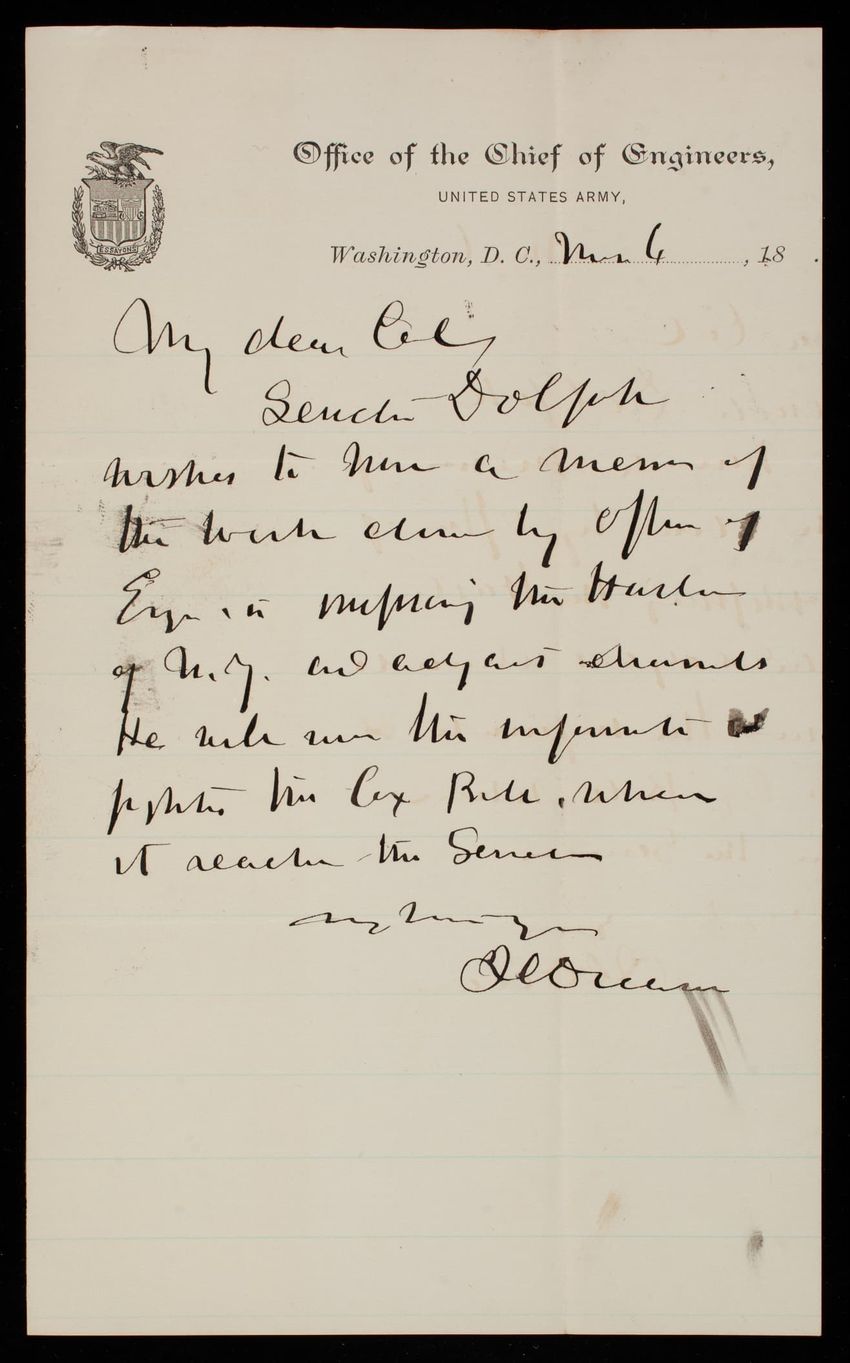 ESSAYONS
Office of the Chief of Engineers,
UNITED STATES ARMY,
Washington, D. C., Mar 6, 18
My dear Col,
Senator Dolph
wishes to have a memo of
the work done by Officers of
Engrs in improving the Harbor
of N.Y. and adjacent channels
He will use the information
fighting the Cox Bill, when
it reaches the Senate